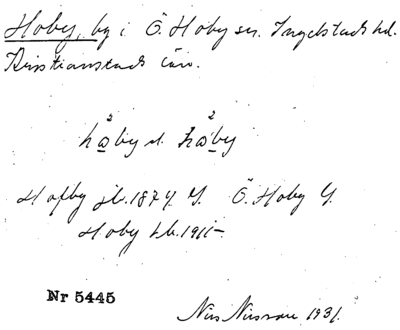 Hoby, by i Ö. Hoby sn. Ingelstads hd.
Kristianstads län.
hoby el. hoby
Hofby jb. 1874 Y. Ö. Hoby Y
Hoby tb. 1911
Nr 5445
Nils Nilsson 1931.